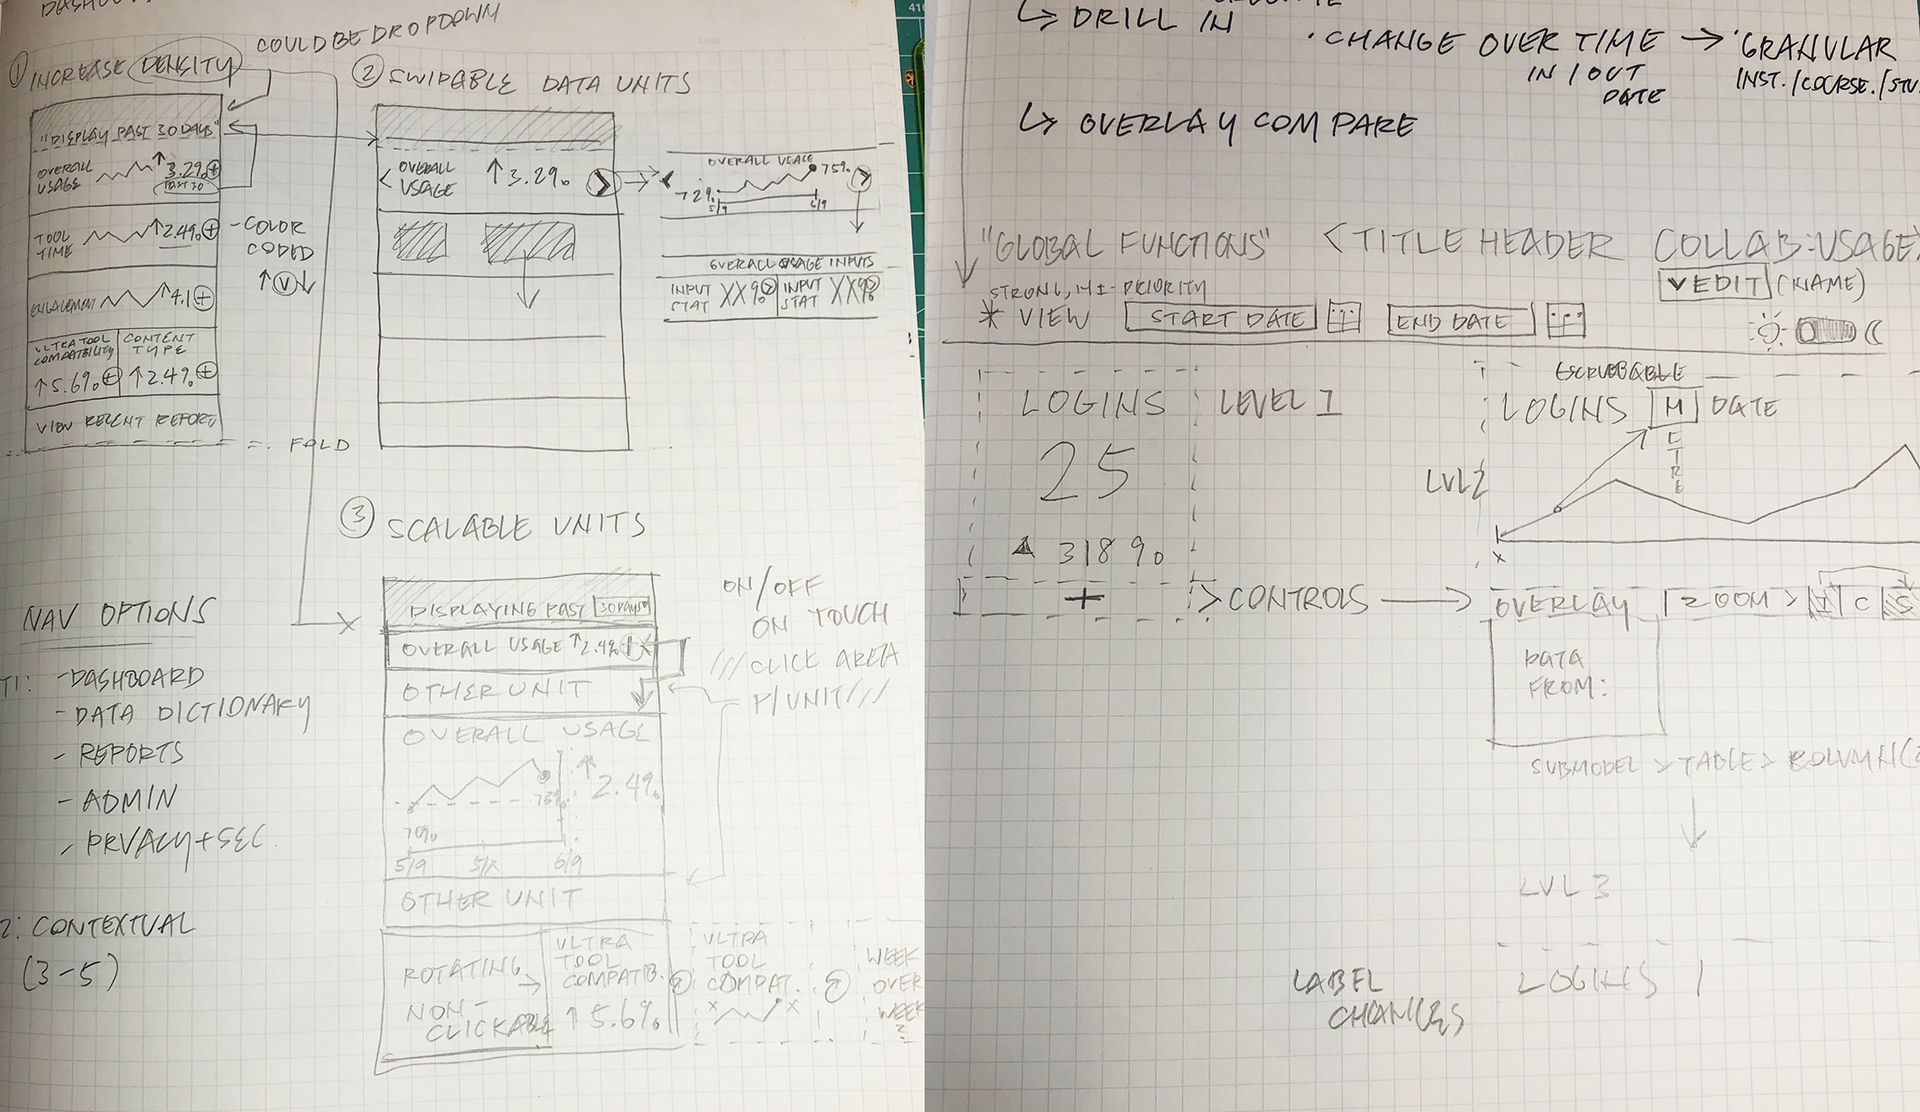 COULD BE DROPDOWN
① INCREASE DENSITY
"DISPLAY PAST 30 DAYS"
OVERALL
USAGE
↑ 3.2% +
PAST 30
TOOL
TIME
↑ 2.4% +
- COLOR
CODED
↑ V ↓
ENGAGEMENT
↑ 4.1 +
ULTRA TOOL
COMPATIBILITY
↑ 5.6% +
CONTENT
TYPE
↑ 2.4% +
VIEW RECENT REPORT
FOLD
② SWIPABLE DATA UNITS
< OVERALL
USAGE
↑ 3.2% >
OVERALL USAGE
72%
75% >
5/9
6/9
OVERALL USAGE INPUTS
INPUT
STAT XX%
INPUT
STAT XX%
③ SCALABLE UNITS
DISPLAYING PAST 30 DAYS
OVERALL USAGE ↑ 2.4%
OTHER UNIT
OVERALL USAGE
↑ 2.4%
70%
75%
5/9
5/X
6/9
OTHER UNIT
ROTATING →
NON-
CLICKABLE
ULTRA
TOOL
COMPATIB.
↑ 5.6%
ULTRA
TOOL
COMPAT.
WEEK
OVER
WEEK
?
ON/OFF
ON TOUCH
///CLICK AREA
P/UNIT///
NAV OPTIONS
T1: - DASHBOARD
- DATA DICTIONARY
- REPORTS
- ADMIN
- PRVACY + SEC
2: CONTEXTUAL
(3-5)
↳ DRILL IN
· CHANGE OVER TIME → · GRANULAR
IN / OUT
DATE
INST./COURSE./STU.
↳ OVERLAY COMPARE
"GLOBAL FUNCTIONS"
< TITLE HEADER COLLAB:USAGE>
STRONG, HI-PRIORITY
V EDIT (NAME)
* VIEW START DATE END DATE
LOGINS
25
▲ 318%
+
LEVEL 1
SCRUBBABLE
LOGINS M DATE
LVL 2
X
> CONTROLS → OVERLAY | ZOOM > I C S
DATA
FROM:
SUBMODEL > TABLE > COLUMN
LVL 3
LABEL
CHANGES